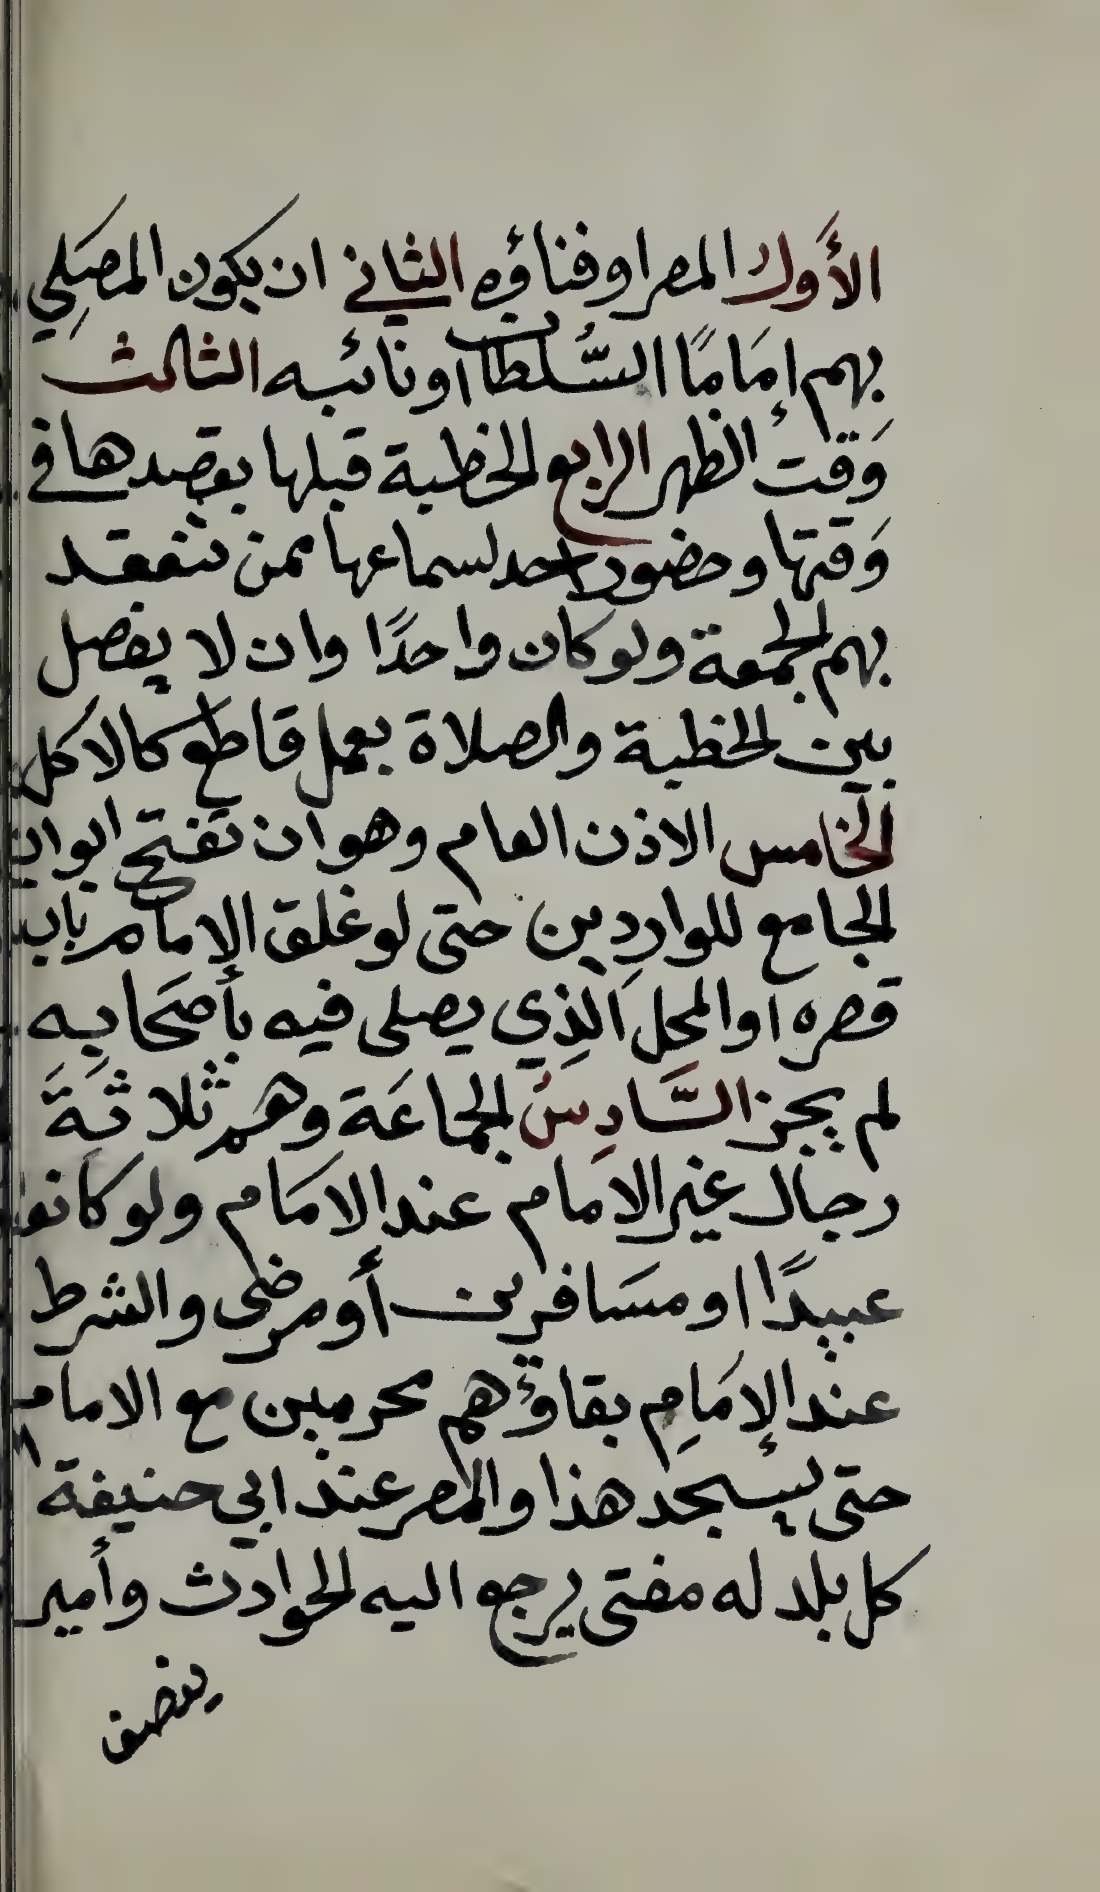 الأَول المصر او فناؤه الثاني ان يكون المصَلِي
بهم إمَامًا السُّلطان او نائبه الثالث
وَقت الظهر الرابع الخطبة قبلها بقصدها في
وَقتها وحضور احد لسماعها ممن تنعقد
بهم الجمعة ولو كان واحدًا وان لا يفصل
بين الخطبة والصلاة بعمل قاطع كالاكل
الخامس الاذن العام وهو ان تفتح ابواب
الجامع للوارِدين حتى لو غلق الإمام باب
قصره او المحل الَّذِي يصلى فيه بأصَحابِه
لم يجز السَّادِسُ الجماعَة وهم ثلاثَةَ
رجال غير الامام عند الامَام ولو كانوا
عبيدًا او مسَافرين أو مرضى والشرط
عند الإمَامِ بقاؤهم محرمين مع الامام
حتى يسجد هذا والمصر عند ابي حنيفة
كل بلد له مفتى يرجع اليه الحوادث وأمير
ينصف